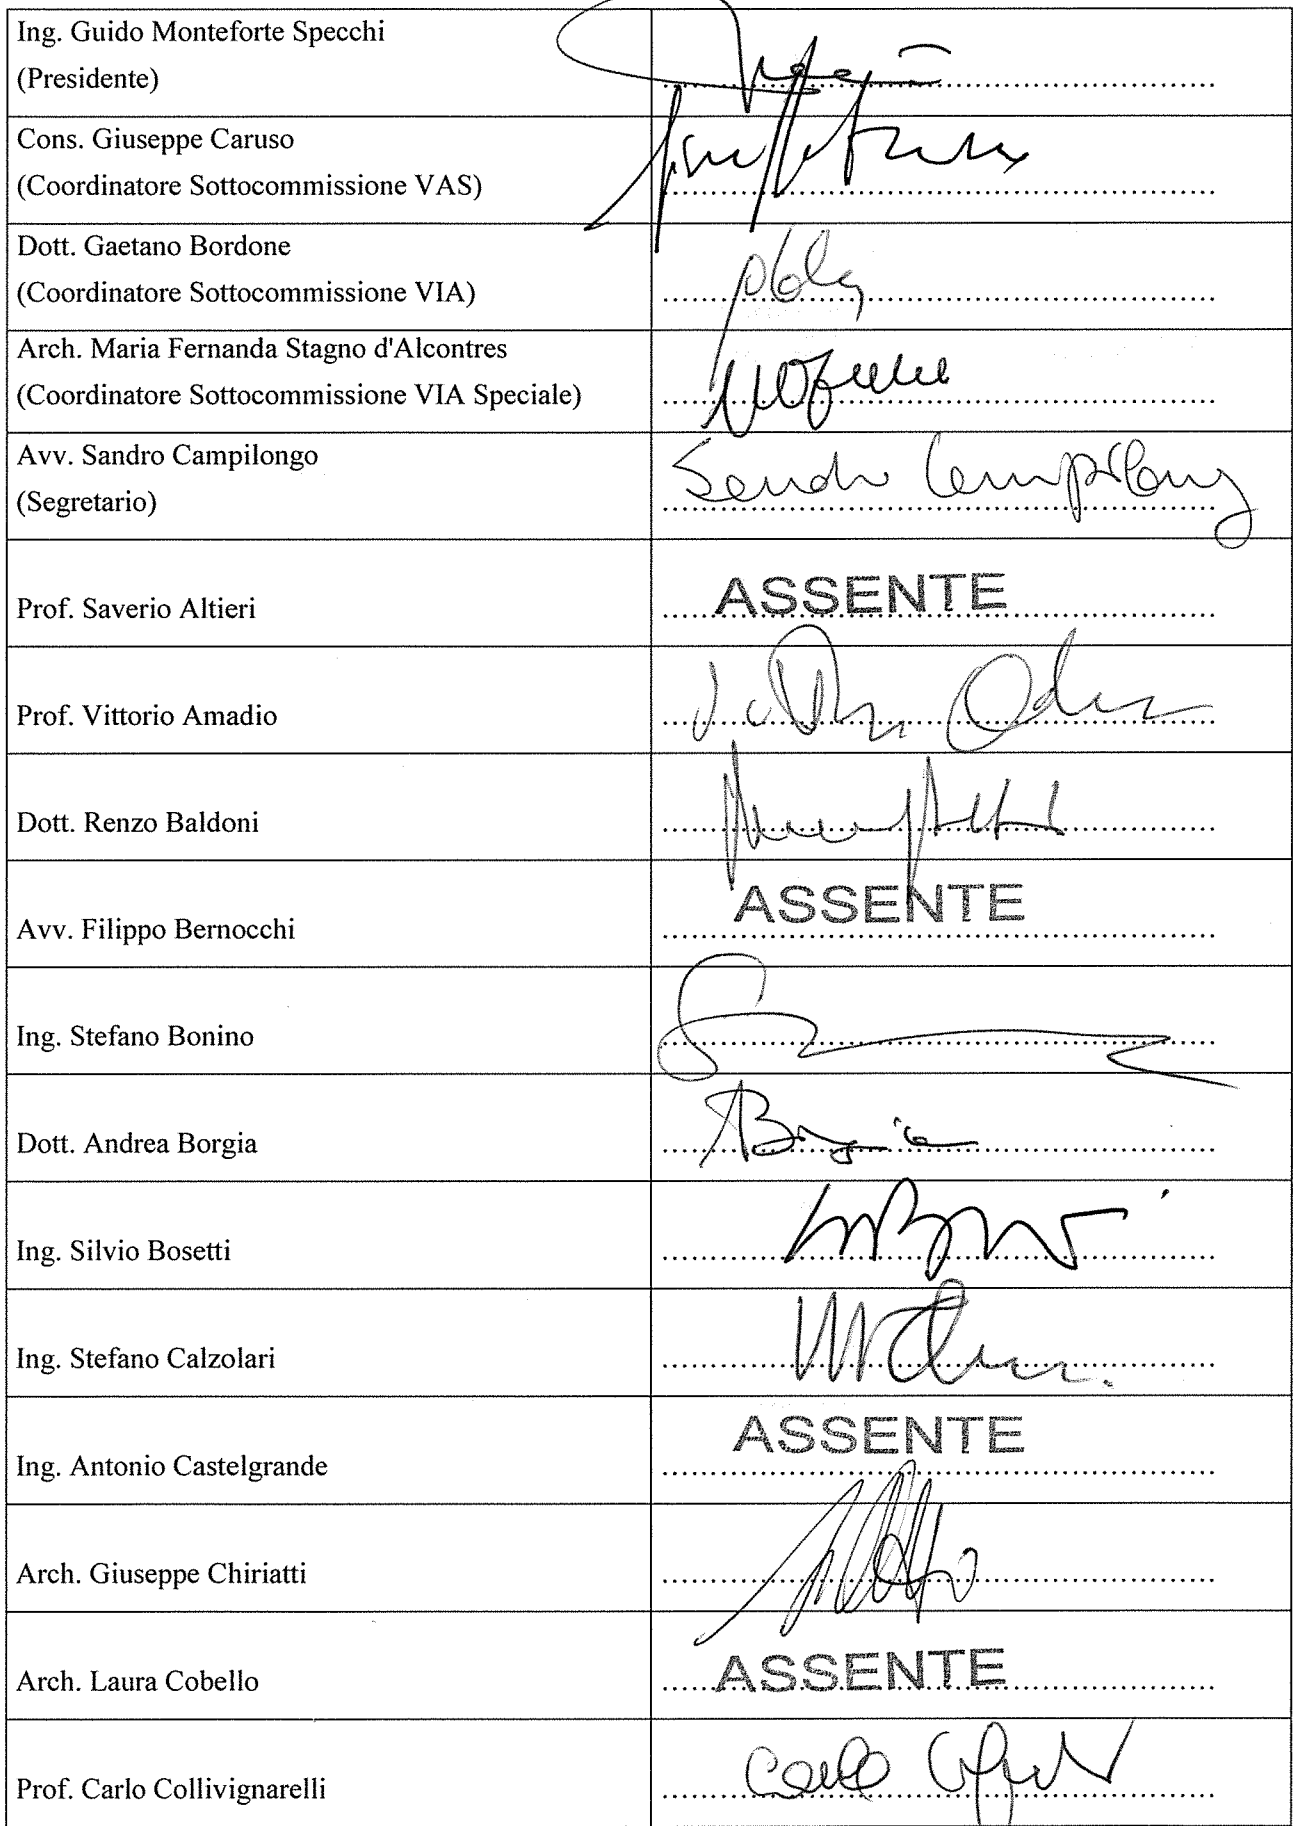 Ing. Guido Monteforte Specchi
(Presidente)
Cons. Giuseppe Caruso
(Coordinatore Sottocommissione VAS)
Dott. Gaetano Bordone
(Coordinatore Sottocommissione VIA)
Arch. Maria Fernanda Stagno d'Alcontres
(Coordinatore Sottocommissione VIA Speciale)
Avv. Sandro Campilongo
(Segretario)
Sandro Campilongo
Prof. Saverio Altieri
ASSENTE
Prof. Vittorio Amadio
Dott. Renzo Baldoni
Avv. Filippo Bernocchi
ASSENTE
Ing. Stefano Bonino
Dott. Andrea Borgia
ABorgia
Ing. Silvio Bosetti
Ing. Stefano Calzolari
Ing. Antonio Castelgrande
ASSENTE
Arch. Giuseppe Chiriatti
Arch. Laura Cobello
ASSENTE
Prof. Carlo Collivignarelli